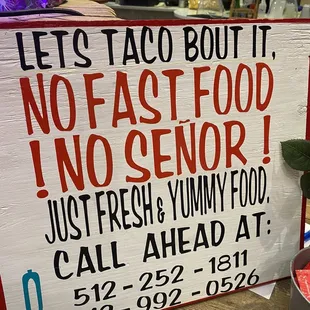 LETS TACO BOUT IT,
NO FAST FOOD
! NO SEÑOR !
JUST FRESH & YUMMY FOOD.
CALL AHEAD AT:
512-252-1811
2-992-0526